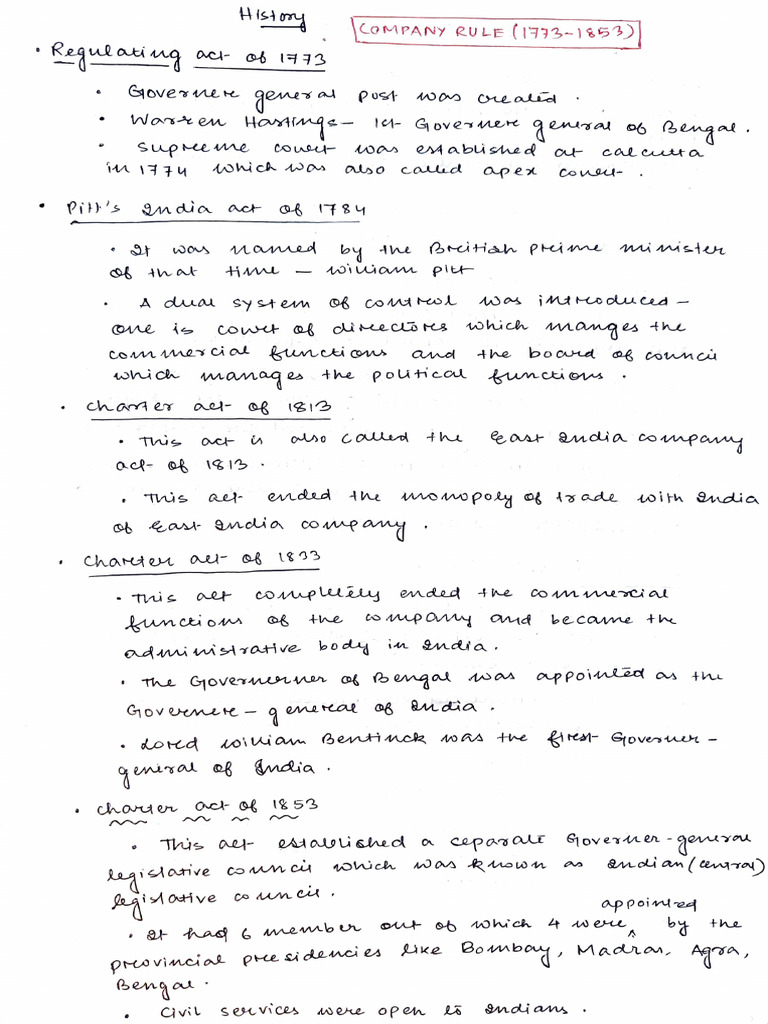 History
COMPANY RULE (1773-1853)
• Regulating act of 1773
• Governer general post was created.
• Warren Hastings - 1st Governer general of Bengal.
• Supreme court was established at calcutta
in 1774 which was also called apex court.
• Pitt's India act of 1784
• It was named by the British prime minister
of that time - William pitt
• A dual system of control was introduced -
one is court of directors which manges the
commercial functions and the board of council
which manages the political functions.
• Charter act of 1813
• This act is also called the East India company
act of 1813.
• This act ended the monopoly of trade with India
of East India company.
• Charter act of 1833
• This act completely ended the commercial
functions of the company and became the
administrative body in India.
• The Governerner of Bengal was appointed as the
Governer - general of India.
• Lord William Bentinck was the first Governer -
general of India.
• Charter act of 1853
• This act established a ceparate Governer-general
legislative council which was known as Indian (central)
legislative council.
• It had 6 member out of which 4 were ^ appointed by the
provincial presidencies like Bombay, Madras, Agra,
Bengal.
• Civil services were open to Indians.